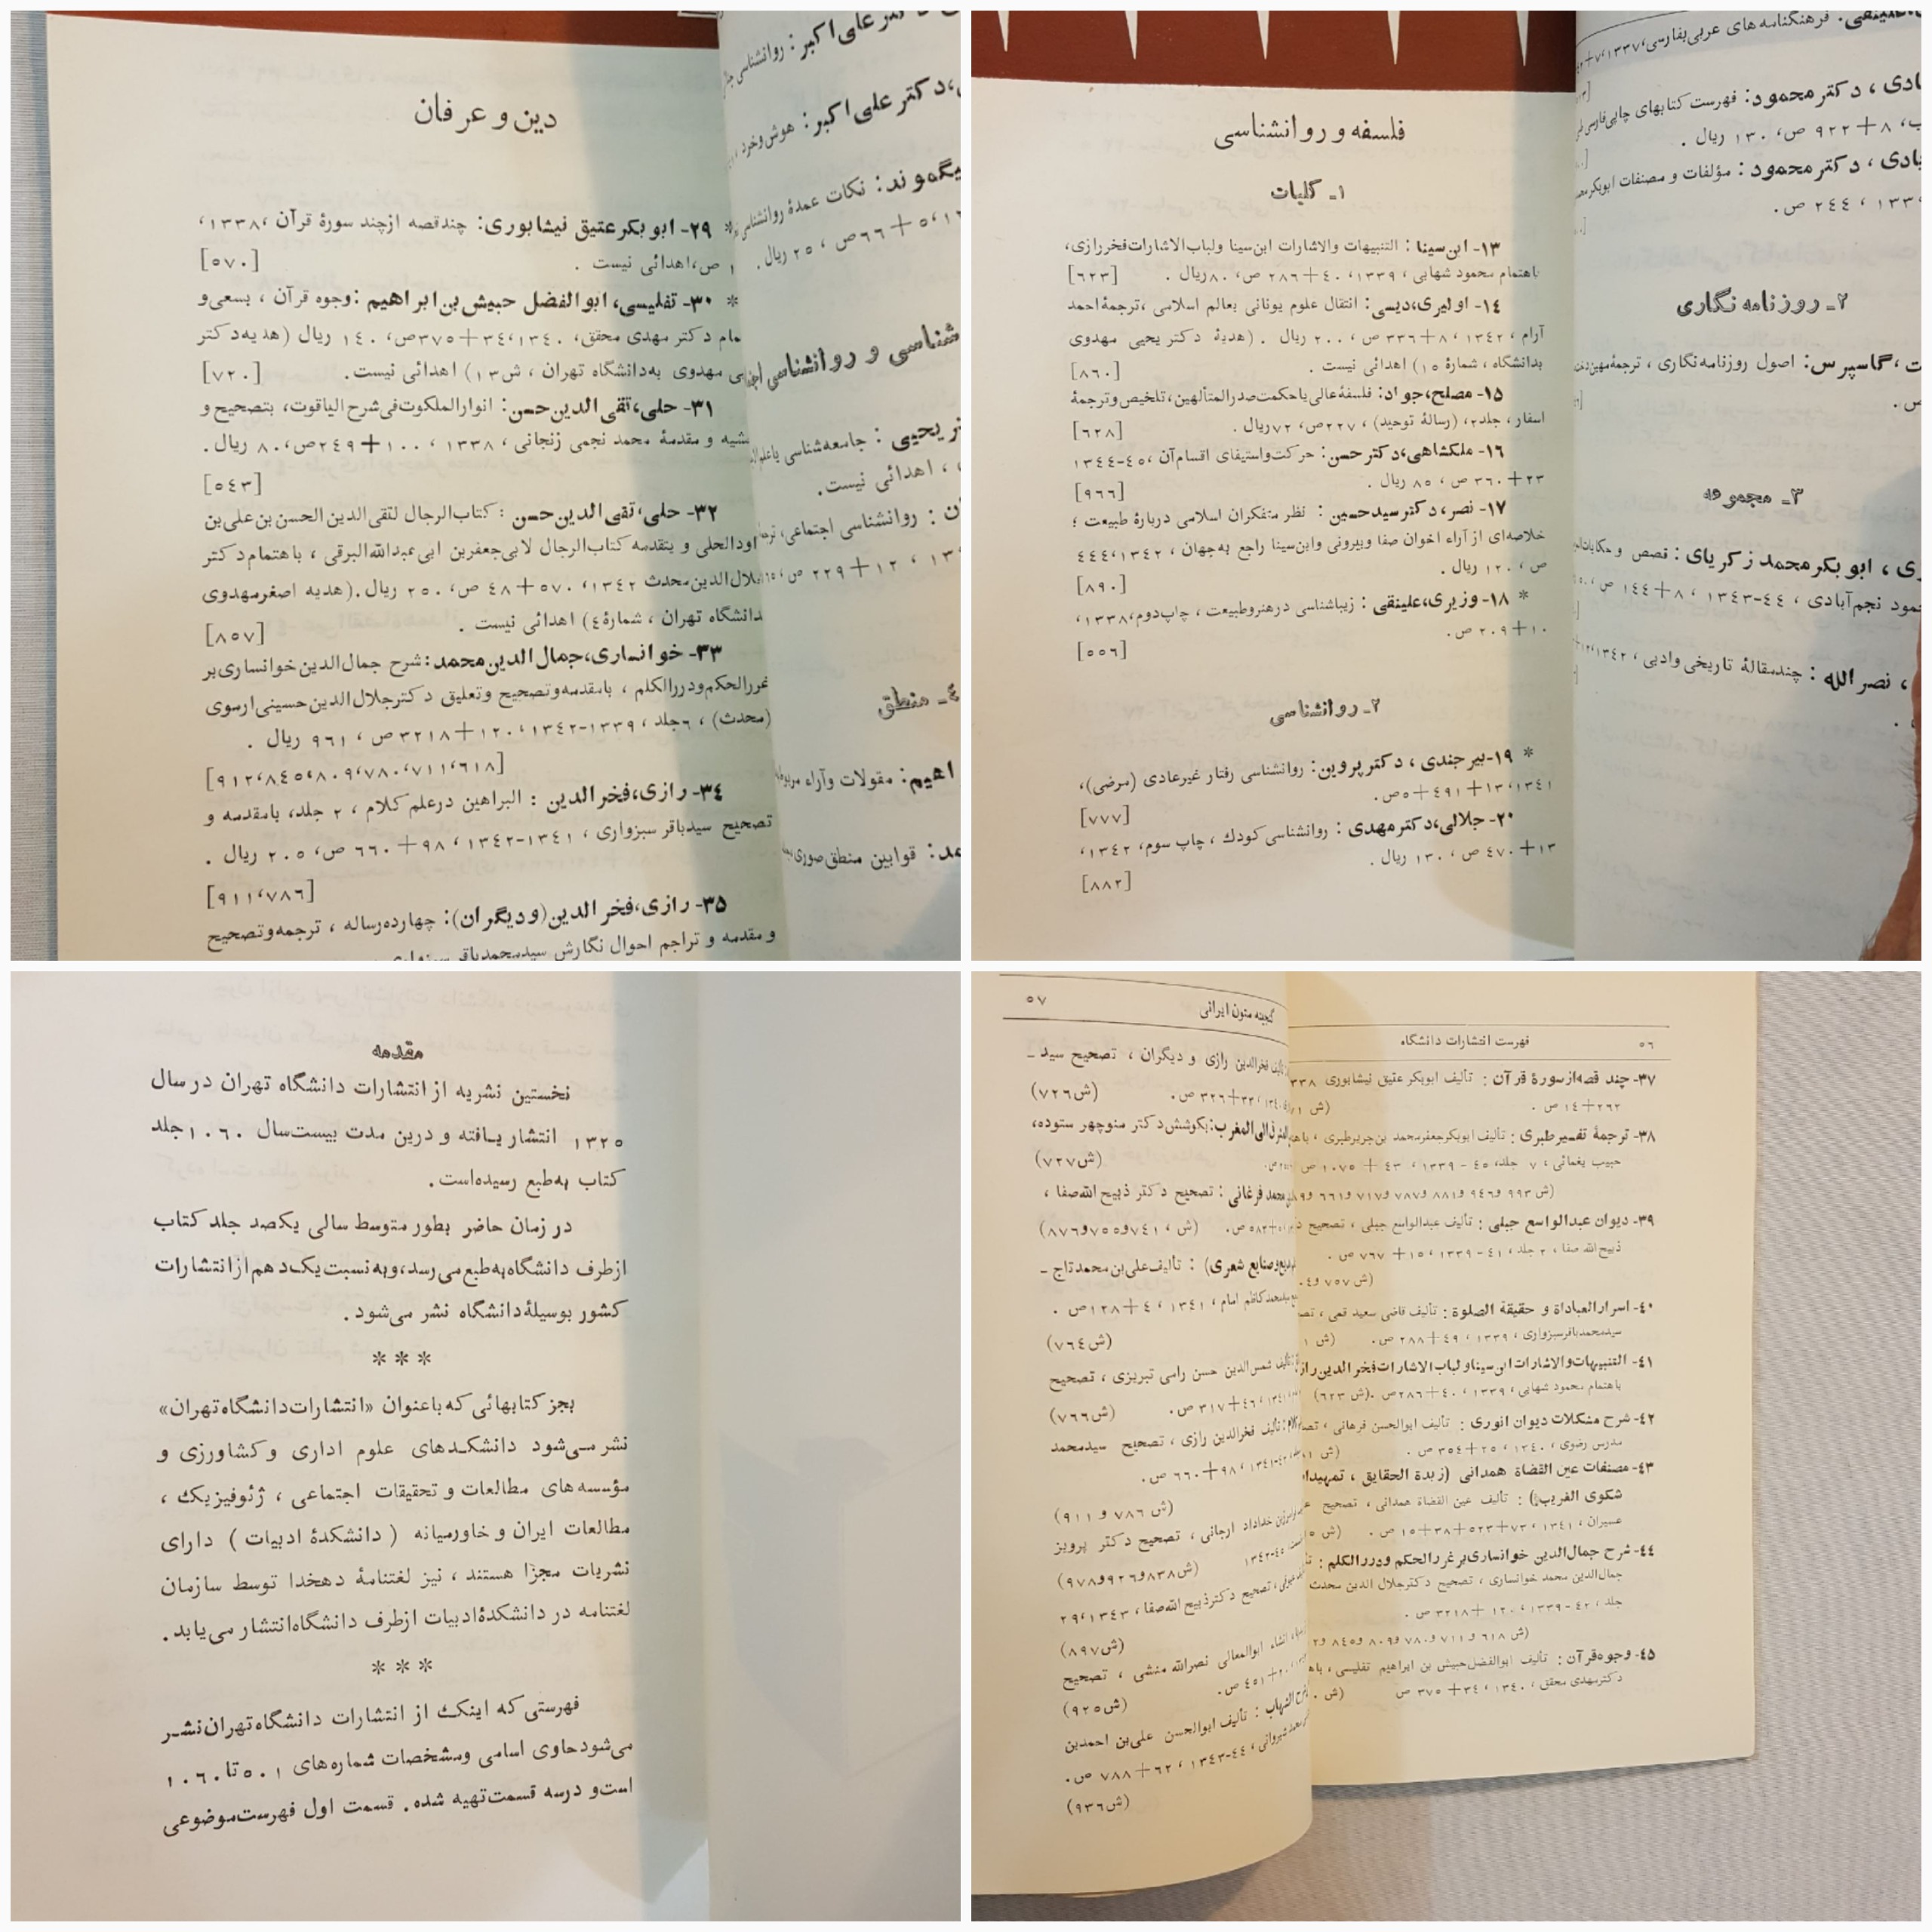 دین و عرفان
* ۲۹- ابوبکر عتیق نیشابوری: چندقصه ازچند سورهٔ قرآن ،۱۳۳۸،
ص،اهدائی نیست .
[۵۷۰]
* ۳۰- تفلیسی، ابوالفضل حبیش بن ابراهیم :وجوه قرآن ، بسعی و
دکتر مهدی محقق، ۱۳٤۰،۳٤+۳۷۵ص، ۱٤۰ ریال (هدیه دکتر
مهدوی به‌دانشگاه تهران ، ش۱۳) اهدائی نیست.
[۷۲۰]
۳۱- حلی،تقی الدین حسن: انوارالملکوت‌فی‌شرح‌الیاقوت، بتصحیح و
و مقدمهٔ محمد نجمی زنجانی ، ۱۳۳۸ ، ۱۰۰+۲٤۹ص، ۸۰ ریال.
[۵٤۳]
۳۲- حلی،تقی الدین حسن : کتاب‌الرجال لتقی‌الدین الحسن بن علی بن
داودالحلی و یتقدمه کتاب‌الرجال لابی‌جعفربن ابی‌عبدالله‌البرقی ، باهتمام دکتر
جلال‌الدین محدث ۱۳٤۲، ۵۷۰+٤۸ ص، ۲۵۰ ریال.(هدیه اصغرمهدوی
بدانشگاه تهران ، شمارهٔ٤) اهدائی نیست .
[۸۵۷]
۳۳- خوانساری،جمال‌الدین‌محمد:شرح جمال‌الدین خوانساری بر
غررالحکم ودررالکلم ، بامقدمه وتصحیح وتعلیق دکترجلال‌الدین حسینی ارموی
(محدث) ، ٦جلد ، ۱۳۳۹-۱۳٤۲، ۱۲۰+۳۲۱۸ ص ، ۹٦۱ ریال .
[۹۱۲،۸٤۵،۸۰۹،۷۸۰،۷۱۱،٦۱۸]
۳٤- رازی،فخرالدین : البراهین درعلم کلام ، ۲ جلد، بامقدمه و
تصحیح سیدباقر سبزواری ، ۱۳٤۱-۱۳٤۲ ، ۹۸+٦٦۰ ص، ۲۰۵ ریال .
[۹۱۱،۷۸٦]
۳۵- رازی،فخرالدین(ودیگران): چهارده‌رساله ، ترجمه وتصحیح
و مقدمه و تراجم احوال نگارش سیدمحمدباقر سبزواری
علی اکبر: روانشناسی
دکتر علی اکبر: هوش وخرد
بیگموند: نکات عمدهٔ روانشناسی
۵+٦٦ص ، ۲۵ ریال.
شناسی و روانشناسی
یحیی : جامعه‌شناسی
، اهدائی نیست.
: روانشناسی اجتماعی،
۱۲+۲۲۹ ص،
٤- منطق
: مقولات وآراء
: قوانین منطق صوری
فلسفه و روانشناسی
۱- کلیات
۱۳- ابن سینا : التنبیهات والاشارات ابن‌سینا ولباب‌الاشارات‌فخررازی،
باهتمام محمود شهابی ، ۱۳۳۹، ٤۰+۲۸٦ ص، ۸۰ریال .
[٦۲۳]
۱٤- اولیری،دیسی: انتقال علوم یونانی بعالم اسلامی ،ترجمهٔ احمد
آرام ، ۱۳٤۲ ، ۸+۳۳٦ ص ، ۲۰۰ ریال . (هدیهٔ دکتر یحیی مهدوی
بدانشگاه ، شمارهٔ ۱۵) اهدائی نیست .
[۸٦۰]
۱۵- مصلح،جواد: فلسفهٔ عالی یاحکمت صدرالمتألهین، تلخیص وترجمهٔ
اسفار ، جلد۲، (رسالهٔ توحید) ، ۲۲۷ص، ۷۲ریال.
[٦۲۸]
۱٦- ملکشاهی،دکترحسن: حرکت‌واستیفای اقسام‌آن ،٤۵-۱۳٤٤
۲۳+۳٦۰ ص ، ۸۵ ریال .
[۹٦٦]
۱۷- نصر،دکترسیدحسین : نظر متفکران اسلامی دربارهٔ طبیعت ؛
خلاصه‌ای از آراء اخوان صفا وبیرونی وابن‌سینا راجع به‌جهان ، ۱۳٤۲،٤٤٤
ص ، ۱۲۰ ریال .
[۸۹۰]
* ۱۸- وزیری،علینقی : زیباشناسی درهنروطبیعت ، چاپ‌دوم،۱۳۳۸،
۱۰+۲۰۹ ص.
[۵۵٦]
۲- روانشناسی
* ۱۹-بیرجندی ، دکترپروین: روانشناسی رفتار غیرعادی (مرضی)،
۱۳٤۱،۱۳+٤۹۱+۵ص.
[۷۷۷]
۲۰- جلالی،دکترمهدی : روانشناسی کودك ، چاپ سوم، ۱۳٤۲،
۱۳+٤۷۰ ص ، ۱۳۰ ریال .
[۸۸۲]
فرهنگنامه های عربی بفارسی،۱۳۳۷،
، دکتر محمود: فهرست کتابهای چاپی فارسی
۸+۹۲۲ ص، ۱۳۰ ریال .
، دکتر محمود : مؤلفات و مصنفات ابوبکر
، ۲٤٤ ص.
۲- روزنامه نگاری
،گاسپرس: اصول روزنامه نگاری ، ترجمهٔ مهین‌دخت
ص.
۳- مجموعه
، ابوبکرمحمد زکریای : قصص و حکایات
محمود نجم‌آبادی ، ٤٤-۱۳٤۳ ، ۸+۱٤٤ ص ،
، نصر الله : چندمقالهٔ تاریخی وادبی ، ۱۳٤۲،
مقدمه
نخستین نشریه از انتشارات دانشگاه تهران در سال
۱۳۲۵ انتشار یـافته و درین مدت بیست‌سال ۱۰٦۰جلد
کتاب به‌طبع رسیده‌است.
در زمان حاضر بطور متوسط سالی یکصد جلد کتاب
ازطرف دانشگاه به‌طبع می‌رسد،وبه نسبت یک‌دهم‌ازانتشارات
کشور بوسیلهٔ دانشگاه نشر می‌شود.
***
بجز کتابهائی که باعنوان «انتشارات‌دانشگاه‌تهران»
نشر مـی‌شود دانشکـدهای علوم اداری وکشاورزی و
مؤسسه های مطالعات و تحقیقات اجتماعی ، ژئوفیزیك ،
مطالعات ایران و خاورمیانه ( دانشکدهٔ ادبیات ) دارای
نشریات مجزا هستند ، نیز لغتنامهٔ دهخدا توسط سازمان
لغتنامه در دانشکدهٔ ادبیات ازطرف دانشگاه‌انتشار می‌یابد.
***
فهرستی که اینك از انتشارات دانشگاه تهران‌نشـر
می‌شودحاوی اسامی ومشخصات شماره‌های ۵۰۱ تا۱۰٦۰
است‌و درسه قسمت‌تهیه شده. قسمت اول فهرست‌موضوعی
۵٦
فهرست انتشارات دانشگاه
۳۷- چند قصه‌ازسورهٔ قرآن : تألیف ابوبکر عتیق نیشابوری
۲٦۲+۱٤ ص .
۳۸- ترجمهٔ تفسیرطبری : تألیف ابوبکرجعفرمحمد بن‌جریرطبری ،
حبیب یغمائی ، ۷ جلد، ٤۵ - ۱۳۳۹ ، ٤۳ + ۱۰۷۵ ص
(ش ۹۹۳ و۹٤٦ و۸۸۱ و۷۸۷ و۷۱۷ و٦٦۱
۳۹- دیوان عبدالواسع جبلی : تألیف عبدالواسع جبلی ، تصحیح
ذبیح‌الله صفا ، ۲ جلد ، ٤۱ - ۱۳۳۹ ، ۱۵+ ۷٦۷ ص .
(ش ۷۵۷ و
٤۰- اسرارالعباداة و حقیقة الصلوة : تألیف قاضی سعید قمی ،
سیدمحمدباقرسبزواری ، ۱۳۳۹ ، ٤۹+۲۸۸ ص.
٤۱- التنبیهات‌والاشارات‌ابن‌سیناولباب‌الاشارات‌فخرالدین‌رازی
باهتمام محمود شهابی ، ۱۳۳۹ ، ٤۰+۲۸٦ص .(ش ٦۲۳)
٤۲- شرح مشکلات دیوان انوری : تألیف ابوالحسن فرهانی ،
مدرس رضوی ، ۱۳٤۰ ، ۲۵+۳۵٤ ص .
٤۳- مصنفات عین القضاة همدانی (زبدة الحقایق ، تمهیدات
شکوی الغریب) : تألیف عین القضاة همدانی ، تصحیح
عسیران ، ۱۳٤۱ ، ۷۳+۵۲۳+۳۸+۱۵ ص .
٤٤-شرح جمال‌الدین خوانساری‌برغررالحکم ودررالکلم :
جمال‌الدین محمد خوانساری ، تصحیح دکترجلال الدین محدث
جلد ، ٤۲ - ۱۳۳۹ ، ۱۲۰+۳۲۱۸ ص .
(ش ٦۱۸ و ۷۱۱ و۷۸۰ و۸۰۹ و۸٤۵
٤۵- وجوه‌قرآن : تألیف ابوالفضل‌حبیش بن ابراهیم تفلیسی ،
دکترمهدی محقق ، ۱۳٤۰ ، ۳٤+ ۳۷۵ ص
گنجینه متون ایرانی
۵۷
فخرالدین رازی و دیگران ، تصحیح سید ـ
۳۲+۳۲٦ ص.
(ش۷۲٦)
بکوشش دکتر منوچهر ستوده،
(ش۷۲۷)
محمد فرغانی : تصحیح دکتر ذبیح الله صفا ،
(ش ، ۷٤۱و۷۵۵و۸۷٦)
صنایع شعری) : تألیف علی‌بن محمد تاج ـ
سیدمحمدکاظم امام ، ۱۳٤۱ ، ٤+۱۲۸ص .
(ش۷٦٤)
تألیف شمس‌الدین حسن رامی تبریزی ، تصحیح
٤٦+۳۱۷ ص .
(ش۷٦٦)
تألیف فخرالدین رازی ، تصحیح سیدمحمد
۹۸+٦٦۰ ص.
(ش ۷۸٦ و ۹۱۱)
خداداد ارجانی ، تصحیح دکتر پرویز
(ش۸۳۸و۹۲٦و۹۷۸)
، تصحیح دکترذبیح‌الله‌صفا ، ۱۳٤۳،۲۹
(ش۸۹۷)
انشاء ابوالمعالی نصرالله منشی ، تصحیح
٤۵۱ ص.
(ش۹۲۵)
: تألیف ابوالحسن علی‌بن احمدبن
شیروانی ، ٤٤-۱۳٤۳ ، ٦۲+۷۸۸ ص.
(ش۹۳٦)